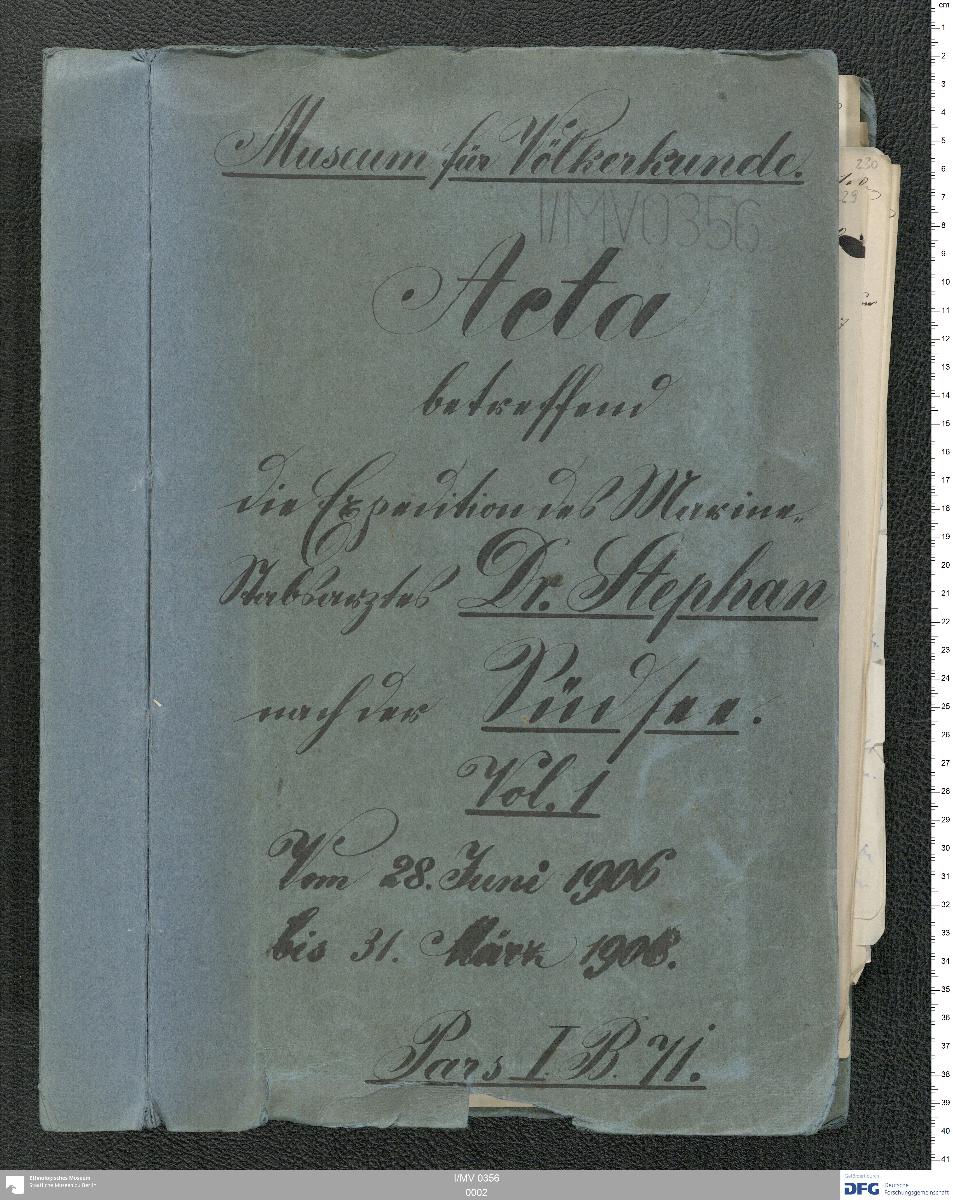 Museum für Völkerkunde.
I/MV 0356
Acta
betreffend
die Expedition des Marine-
Stabsarztes Dr. Stephan
nach der Südsee.
Vol. 1
Vom 28. Juni 1906
bis 31. März 1908.
Pars I. B. 71.
230
29
cm
1
2
3
4
5
6
7
8
9
10
11
12
13
14
15
16
17
18
19
20
21
22
23
24
25
26
27
28
29
30
31
32
33
34
35
36
37
38
39
40
41
Ethnologisches Museum
Staatliche Museen zu Berlin
I/MV 0356
0002
Gefördert durch
DFG Deutsche
Forschungsgemeinschaft